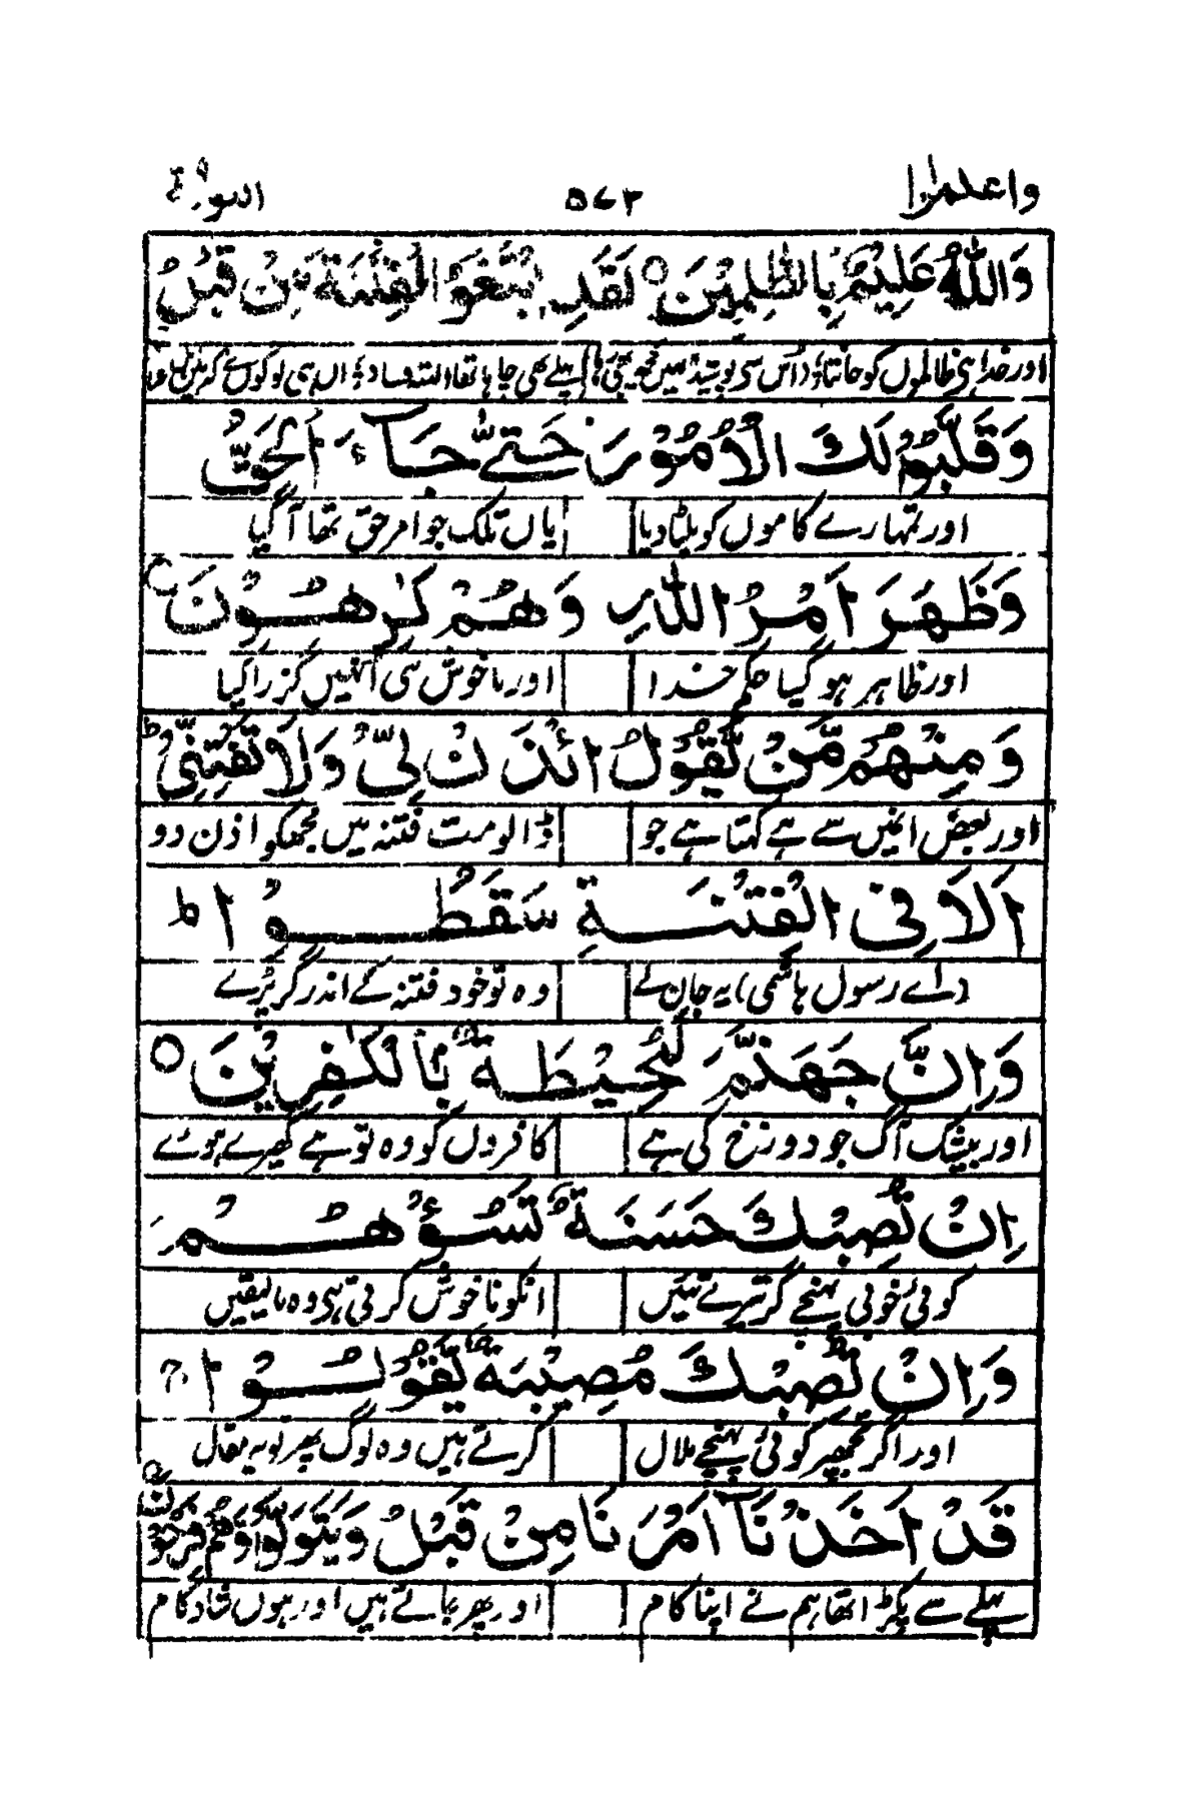 واعلموا ۱۰ ۵۷۳ التوبۃ ۹
وَاللّٰهُ عَلِيْمٌۢ بِالظّٰلِمِيْنَ ○ لَقَدِ ابْتَغَوُا الْفِتْنَةَ مِنْ قَبْلُ
اور خدا ہی ظالموں کو جانتا پہلے بھی چاہا تھا
وَقَلَّبُوْا لَكَ الْاُمُوْرَ حَتّٰى جَآءَ الْحَقُّ
اور تمہارے کاموں کو پلٹا دیا یاں تلک جو امر حق تھا آ گیا
وَظَهَرَ اَمْرُ اللّٰهِ وَهُمْ كٰرِهُوْنَ ○
اور ظاہر ہو گیا حکم خدا اور ناخوش ہی انہیں گزرا کیا
وَمِنْهُمْ مَّنْ يَّقُوْلُ ائْذَنْ لِّىْ وَلَا تَفْتِنِّىْ ط
اور بعض انمیں سے ہے کہتا ہے جو ڈالو مت فتنہ میں مجھکو اذن دو
اَلَا فِى الْفِتْنَةِ سَقَطُوْا ط
(اے رسول ہاشمی) یہ جان لے وہ تو خود فتنہ کے اندر گر پڑے
وَاِنَّ جَهَنَّمَ لَمُحِيْطَةٌۢ بِالْكٰفِرِيْنَ ○
اور بیشک آگ جو دوزخ کی ہے کافروں کو وہ تو ہے گھیرے ہوئے
اِنْ تُصِبْكَ حَسَنَةٌ تَسُؤْهُمْ
کوئی خوبی پہنچے گر تیرے تئیں انکو ناخوش کرتی ہی وہ بالیقیں
وَاِنْ تُصِبْكَ مُصِيْبَةٌ يَّقُوْلُوْا
اور اگر تجھپر کوئی پہنچے ملال کرتے ہیں وہ لوگ پھر تو یہ مقال
قَدْ اَخَذْنَآ اَمْرَنَا مِنْ قَبْلُ وَيَتَوَلَّوْا وَّهُمْ فَرِحُوْنَ ○
پہلے سے پکڑ اتھا ہم نے اپنا کام اور پھر جاتے ہیں اور ہوں شاد کام